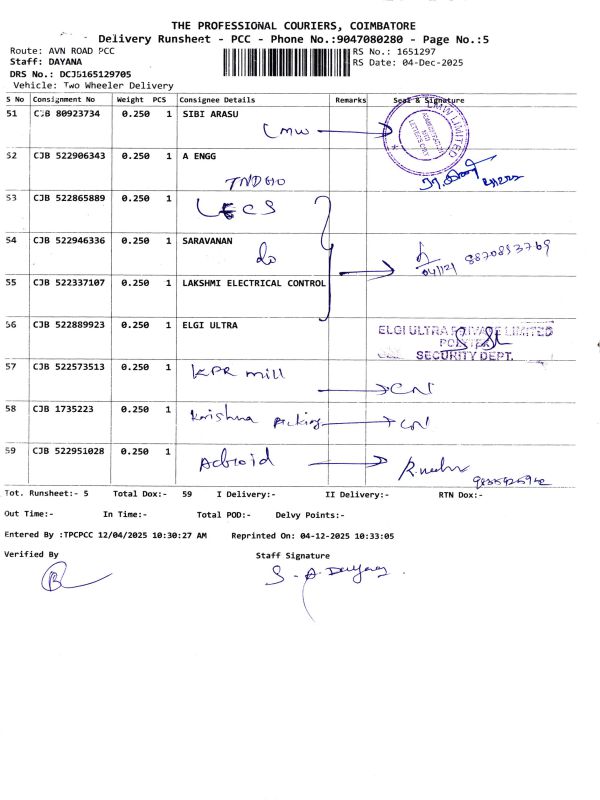 THE PROFESSIONAL COURIERS, COIMBATORE
Delivery Runsheet - PCC - Phone No.:9047080280 - Page No.:5
Route: AVN ROAD PCC
RS No.: 1651297
Staff: DAYANA
RS Date: 04-Dec-2025
DRS No.: DCJB165129705
Vehicle: Two Wheeler Delivery
S No Consignment No Weight PCS Consignee Details Remarks Seal & Signature
51 CJB 80923734 0.250 1 SIBI ARASU
LMW
LMW LIMITED
52 CJB 522906343 0.250 1 A ENGG
53 CJB 522865889 0.250 1 LECS
54 CJB 522946336 0.250 1 SARAVANAN
do
55 CJB 522337107 0.250 1 LAKSHMI ELECTRICAL CONTROL
56 CJB 522889923 0.250 1 ELGI ULTRA
ELGI ULTRA PRIVATE LIMITED
SECURITY DEPT.
57 CJB 522573513 0.250 1 KPR mill
58 CJB 1735223 0.250 1 Krishna
59 CJB 522951028 0.250 1
Tot. Runsheet:- 5 Total Dox:- 59 I Delivery:- II Delivery:- RTN Dox:-
Out Time:- In Time:- Total POD:- Delvy Points:-
Entered By :TPCPCC 12/04/2025 10:30:27 AM Reprinted On: 04-12-2025 10:33:05
Verified By Staff Signature